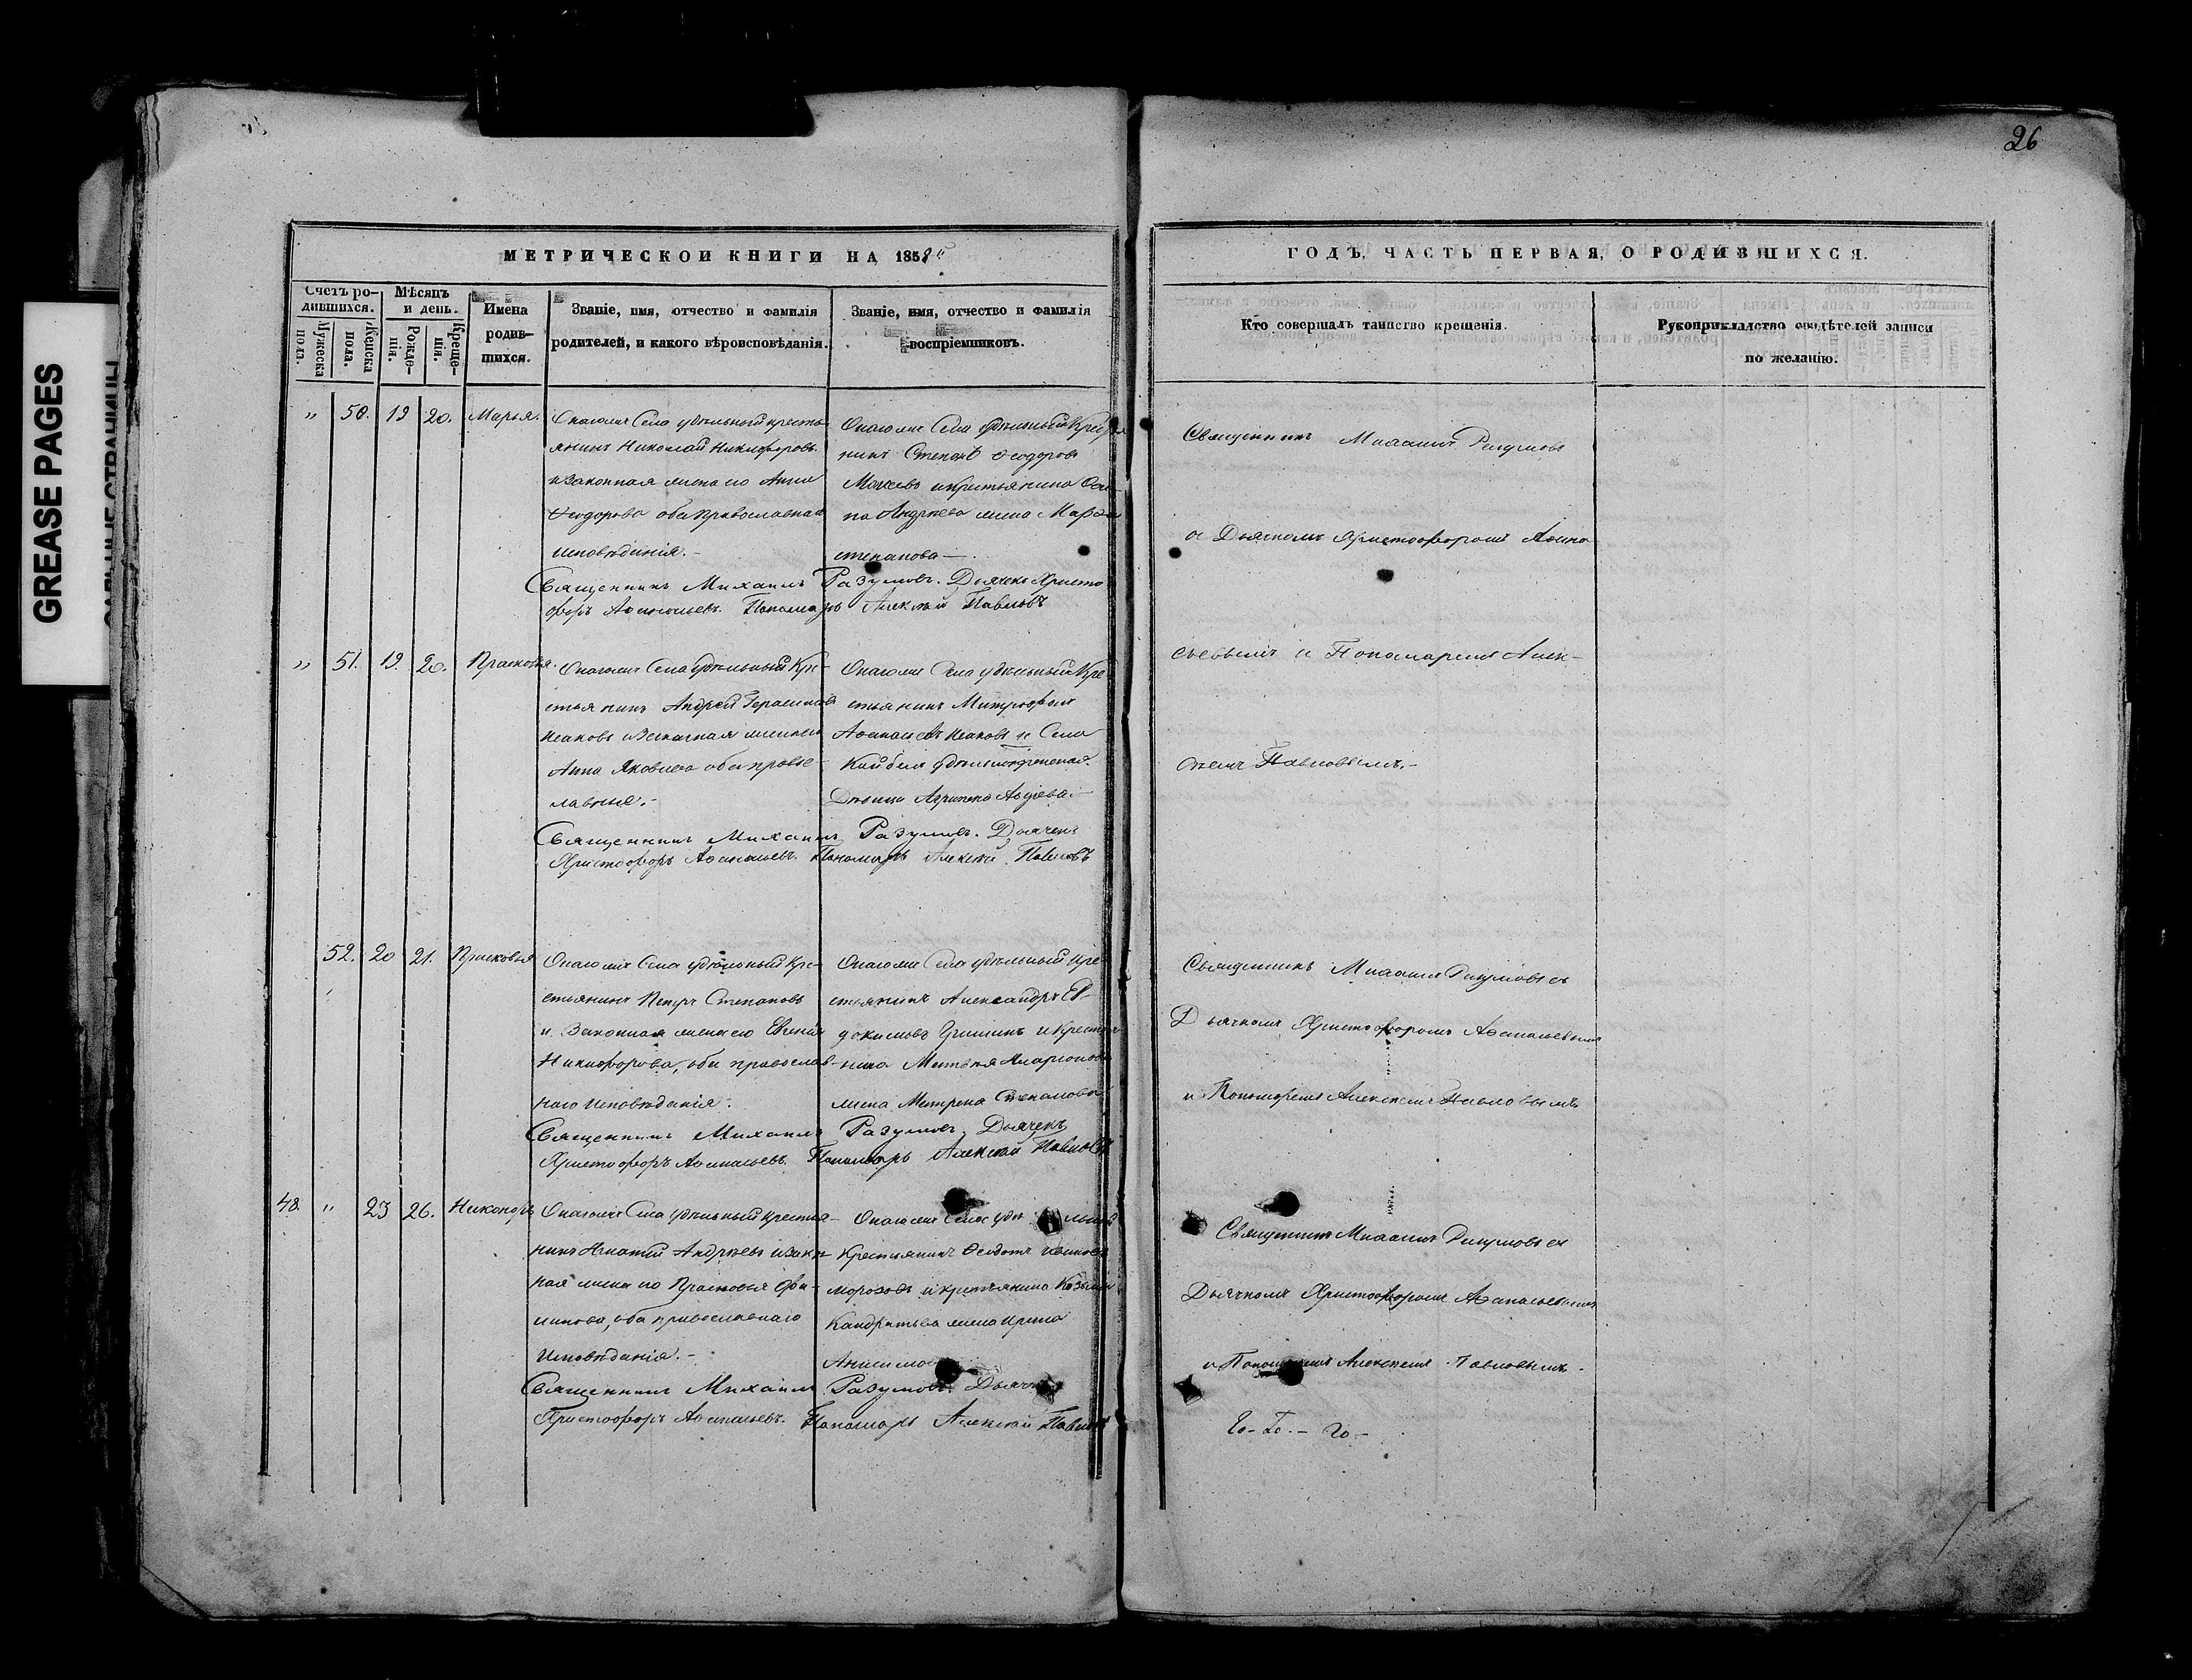 26
GREASE PAGES
МЕТРИЧЕСКОЙ КНИГИ НА 1858й
ГОДЪ, ЧАСТЬ ПЕРВАЯ, О РОДИВШИХСЯ.
Счетъ родившихся.
Мужеска пола.
Женска пола.
Мѣсяцъ и день.
Рожденія.
Крещенія.
Имена родившихся.
Званіе, имя, отчество и фамилія
родителей, и какого вѣроисповѣданія.
Званіе, имя, отчество и фамилія
воспріемниковъ.
Кто совершалъ таинство крещенія.
Рукоприкладство свидѣтелей записи
по желанію.
" 50. 19 20. Марья.
Села удѣльный кресть-
янинъ Николай Никифоровъ
и законная жена его Анна
Феодорова оба православнаго
исповѣданія.-
Села удѣльный Крестья
нинъ Степанъ Феодоровъ
и крестьянина Оси-
па Андрѣева жена Марфа
степанова-
Священникъ Михаилъ Разумовъ. Дьячекъ Христо
форъ Афанасьевъ. Пономарь Алексѣй Павловъ
Священникъ Михаилъ Разумовъ
съ Дьячкомъ Христофоромъ Афана
сьевымъ и Пономаремъ Алек-
сѣемъ Павловымъ.-
" 51. 19. 20. Прасковья.
Села удѣльный Кре-
стьянинъ Андрей Герасимовъ
Исаковъ и Законная жена его
Анна Яковлева оба правос-
лавные.-
Села удѣльный Кре
стьянинъ Митрофанъ
Афанасьевъ Исаковъ и Села
Дѣвица Агрипена Авдѣева.-
Священникъ Михаилъ Разумовъ. Дьячекъ
Христофоръ Афанасьевъ. Пономарь Алексѣй Павловъ
52. 20 21. Прасковья
Села удѣльный Кре-
стьянинъ Петръ Степановъ
и Законная жена его Евгенія
Никифорова, оба православ-
наго исповѣданія.
Села удѣльный Кре
стьянинъ Александръ Ев-
докимовъ Гришинъ и Крестья
нина Матвѣя Иларіонова
жена Матрена Степанова
Священникъ Михаилъ Разумовъ. Дьячекъ
Христофоръ Афанасьевъ. Пономарь Алексѣй Павловъ
Священникъ Михаилъ Разумовъ съ
Дьячкомъ Христофоромъ Афанасьевымъ
и Пономаремъ Алексѣемъ Павловымъ
48. " 23 26. Никаноръ
Села удѣльный крестья-
нинъ Игнатій Андрѣевъ и закон
ная жена его Прасковья Фи-
липова, оба православнаго
исповѣданія.-
Села удѣльный
Крестьянинъ Феодотъ
Морозовъ и крестьянина Козьмы
Кандратьева жена Ирина
Анисимова
Священникъ Михаилъ Разумовъ. Дьячекъ
Христофоръ Афанасьевъ. Пономарь Алексѣй Павловъ
Священникъ Михаилъ Разумовъ съ
Дьячкомъ Христофоромъ Афанасьевымъ
и Пономаремъ Алексѣемъ Павловымъ.